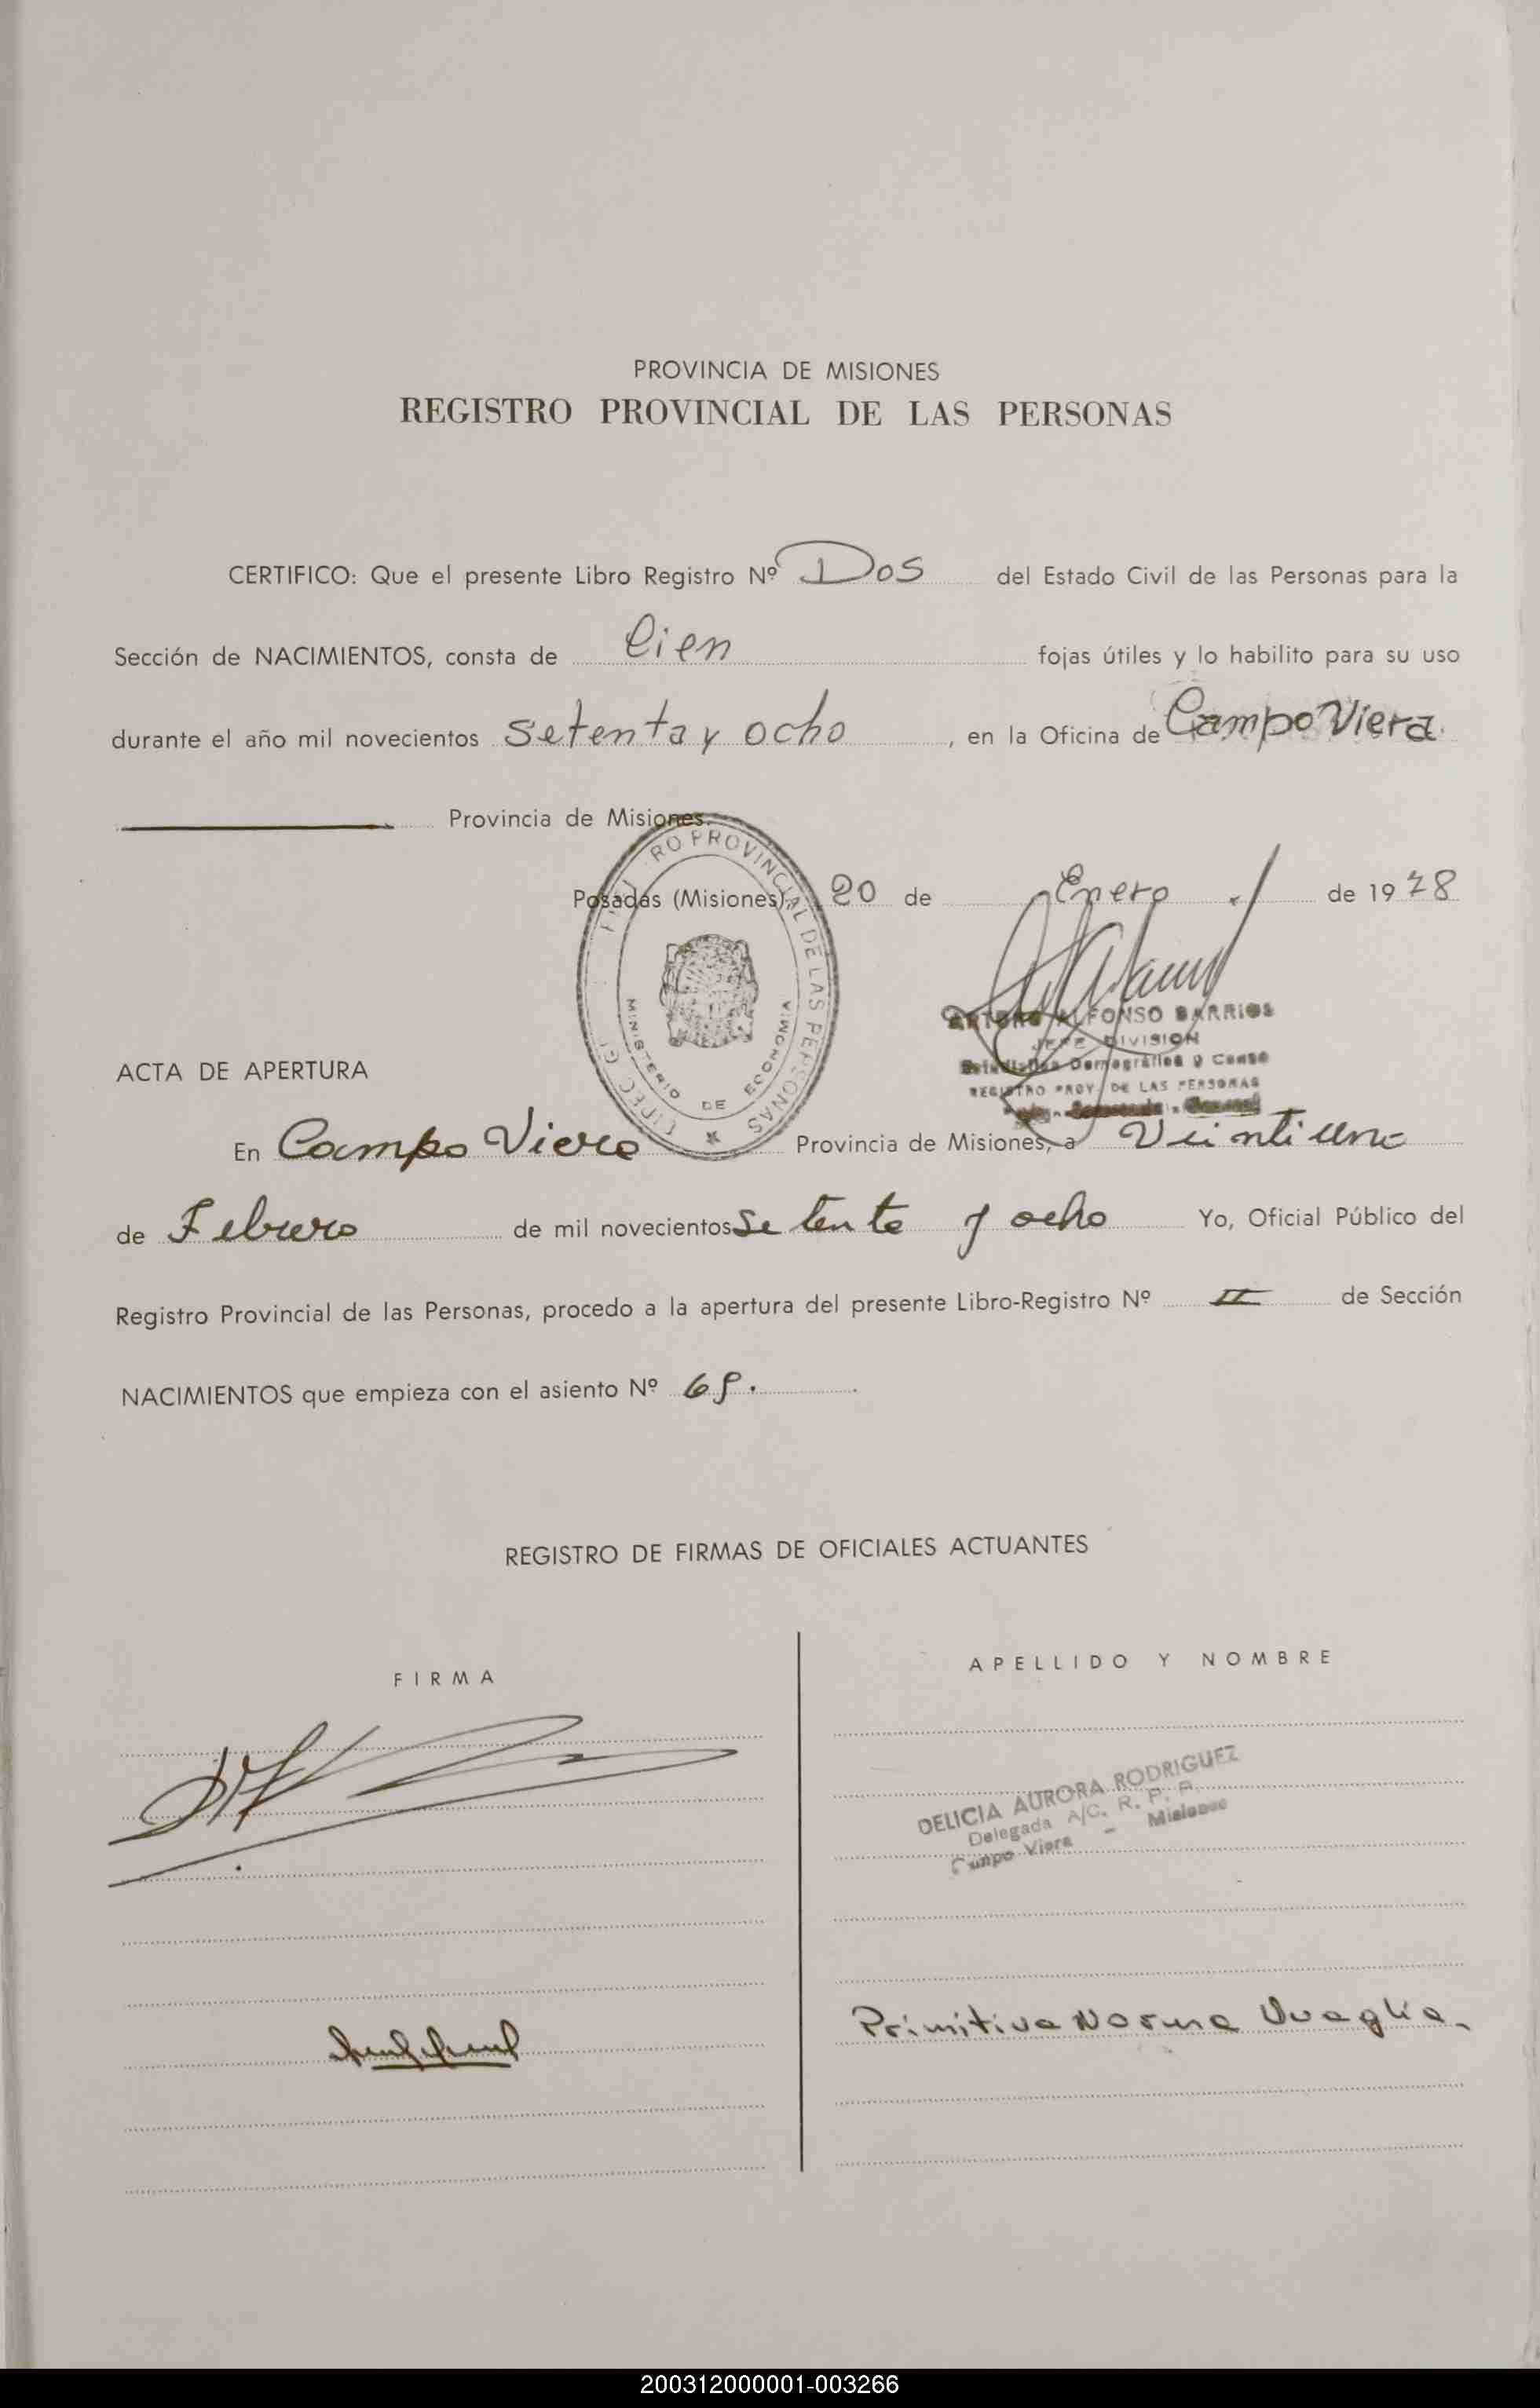 PROVINCIA DE MISIONES
REGISTRO PROVINCIAL DE LAS PERSONAS
CERTIFICO: Que el presente Libro Registro Nº Dos del Estado Civil de las Personas para la
Sección de NACIMIENTOS, consta de Cien fojas útiles y lo habilito para su uso
durante el año mil novecientos setenta y ocho, en la Oficina de Campo Viera.
Provincia de Misiones.
Posadas (Misiones), 20 de Enero de 1978
PROVINCIAL DE LAS PERSONAS
MINISTERIO DE ECONOMIA
ARTURO ALFONSO BARRIOS
JEFE DIVISION
Estadistica Demografica y Censo
REGISTRO PROV. DE LAS PERSONAS
ACTA DE APERTURA
En Campo Viera Provincia de Misiones, a Veintiuno
de Febrero de mil novecientos Setenta y ocho Yo, Oficial Público del
Registro Provincial de las Personas, procedo a la apertura del presente Libro-Registro Nº II de Sección
NACIMIENTOS que empieza con el asiento Nº 69.
REGISTRO DE FIRMAS DE OFICIALES ACTUANTES
FIRMA
APELLIDO Y NOMBRE
DELICIA AURORA RODRIGUEZ
Delegada A/C. R. P. P.
Campo Viera - Misiones
Primitiva Norma
200312000001-003266